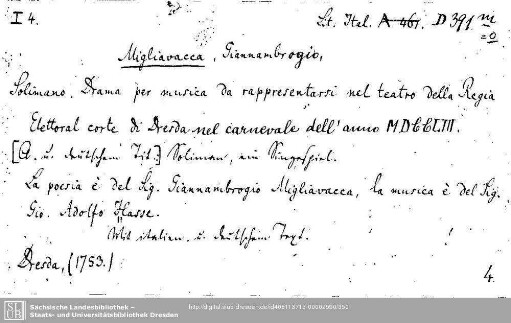 I 4.
Lit. Ital. A 461. D 391 m
=0
Migliavacca, Giannambrogio,
Solimano. Drama per musica da rappresentarsi nel teatro della Regia
Elettoral corte di Dresda nel carnevale dell'anno MDCCLIII.
[A. u. deutschem Tit.:] Soliman, ein Singespiel.
La poesia è del Sig. Giannambrogio Migliavacca, la musica è del Sig.
Gio. Adolfo Hasse.
Mit italien. u. deutschem Text.
Dresda, (1753.)
4.
Sächsische Landesbibliothek –
Staats- und Universitätsbibliothek Dresden